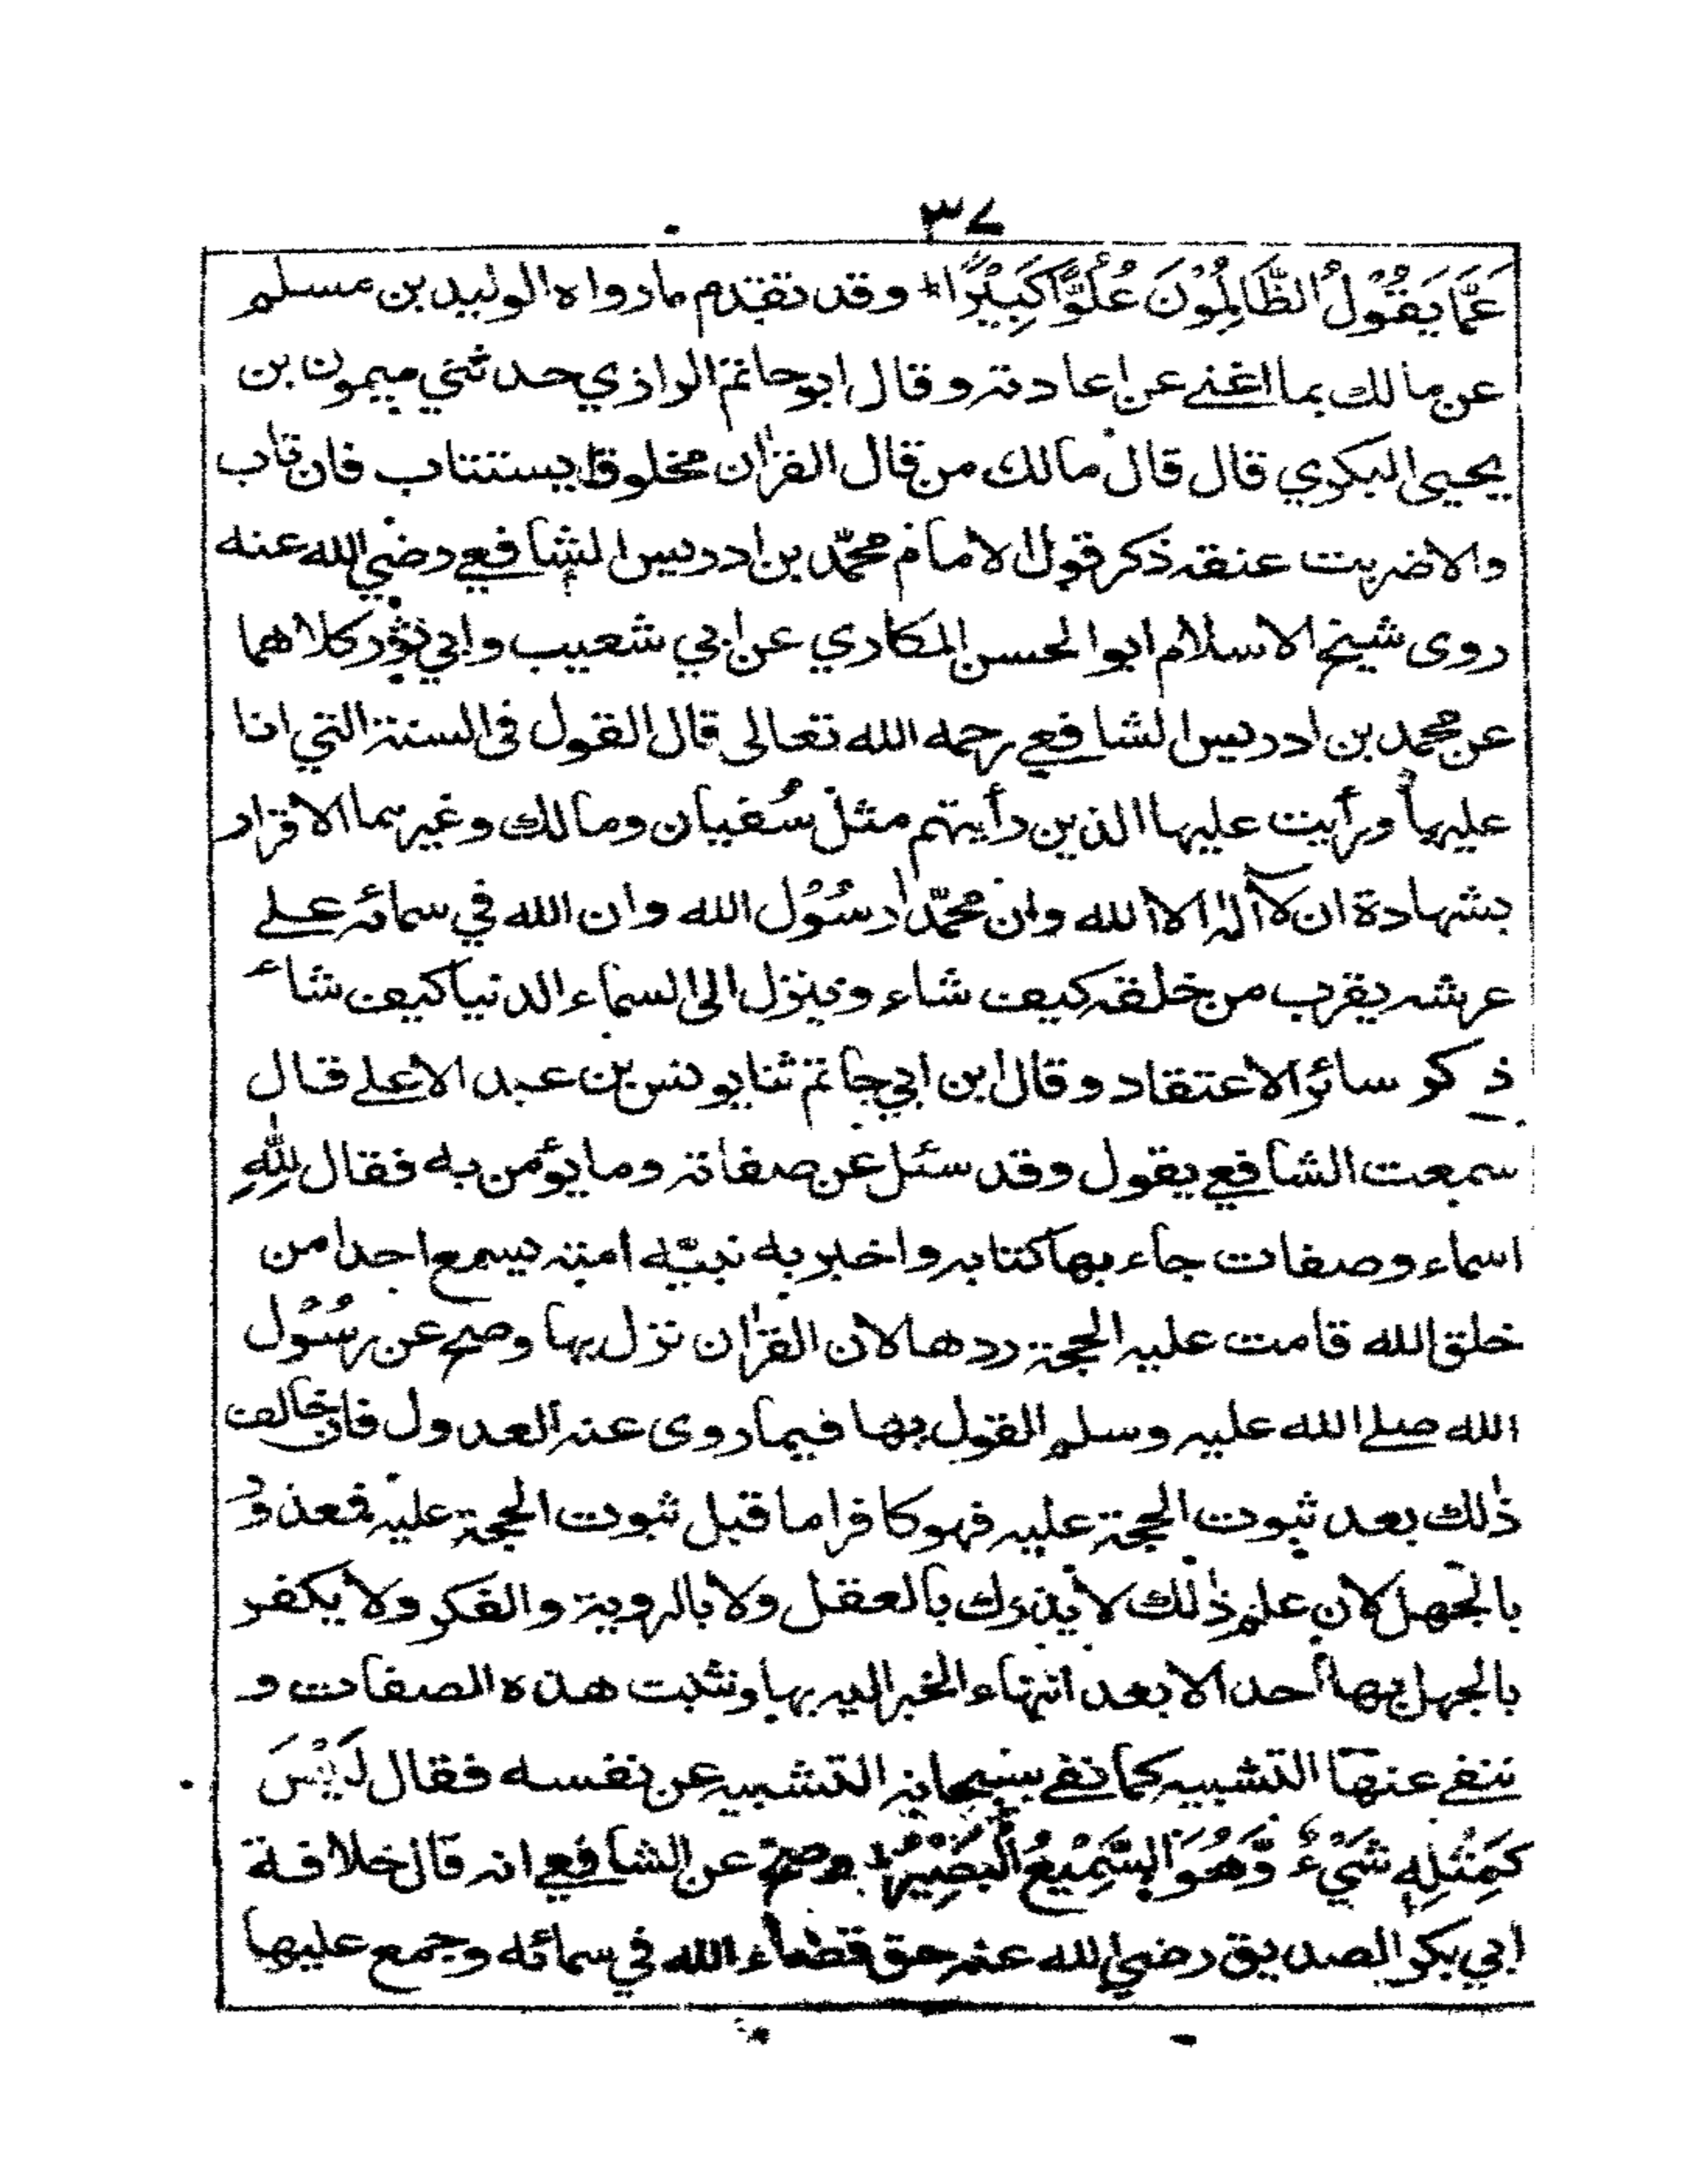 ٣٧
عَمَّا يَقُوْلُ الظَّالِمُوْنَ عُلُوًّا كَبِيْرًا وقد تقدم مارواه الوليد بن مسلم
عن مالك بما اغنى عن اعادته وقال ابو حاتم الرازي حدثني ميمون بن
يحيى البكري قال قال مالك من قال القرآن مخلوق يستتاب فان تاب
والا ضربت عنقه ذكر قول الامام محمّد بن ادريس الشافعي رضي الله عنه
روى شيخ الاسلام ابو الحسن المكاري عن ابي شعيب وابي ثور كلاهما
عن محمد بن ادريس الشافعي رحمه الله تعالى قال القول فى السنة التي انا
عليها ورأيت عليها الذين رأيتهم مثل سُفيان ومالك وغيرهما الاقرار
بشهادة ان لآ اله الا الله وان محمّدا رسُوْل الله وان الله في سمائه على
عرشه يقرب من خلقه كيف شاء وينزل الى السماء الدنيا كيف شاء
ذكر سائر الاعتقاد وقال ابن ابي حاتم ثنا يونس بن عبد الاعلى قال
سمعت الشافعي يقول وقد سئل عن صفاته وما يؤمن به فقال لِلّٰهِ
اسماء وصفات جاء بها كتابه واخبر به نبيّه امته ليسمع احدا من
خلق الله قامت عليه الحجة ردها لان القرآن نزل بها وصح عن رسُوْل
الله صلى الله عليه وسلم القول بها فيما روى عنه العدول فان خالف
ذٰلك بعد ثبوت الحجة عليه فهو كافر اما قبل ثبوت الحجة عليه فمعذور
بالجهل لان علم ذٰلك لا يدرك بالعقل ولا بالروية والفكر ولا يكفر
بالجهل بها أحد الا بعد انتهاء الخبر اليه بها ونثبت هذه الصفات و
ننفى عنها التشبيه كما نفى سبحانه التشبيه عن نفسه فقال لَيْسَ
كَمِثْلِهٖ شَيْءٌ وَّهُوَ السَّمِيْعُ الْبَصِيْرُ وصح عن الشافعي انه قال خلافة
ابي بكر الصديق رضي الله عنه حق قضاء الله في سمائه وجمع عليها